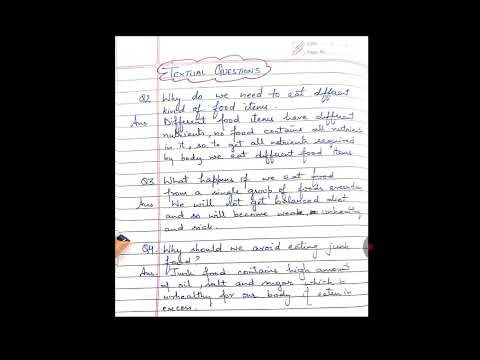 TEXTUAL QUESTIONS
Q2 Why do we need to eat different
kind of food items.
Ans Different food items have different
nutrients, no food contains all nutrients
in it, so to get all nutrients required
by body we eat different food items
Q3. What happens if we eat food
from a single group of foods everyday
Ans We will not get balanced diet
and so will become weak, unhealthy
and sick.
Q4. Why should we avoid eating junk
food?
Ans. Junk food contains high amount
of oil, salt and sugar which is
unhealthy for our body if eaten in
excess.